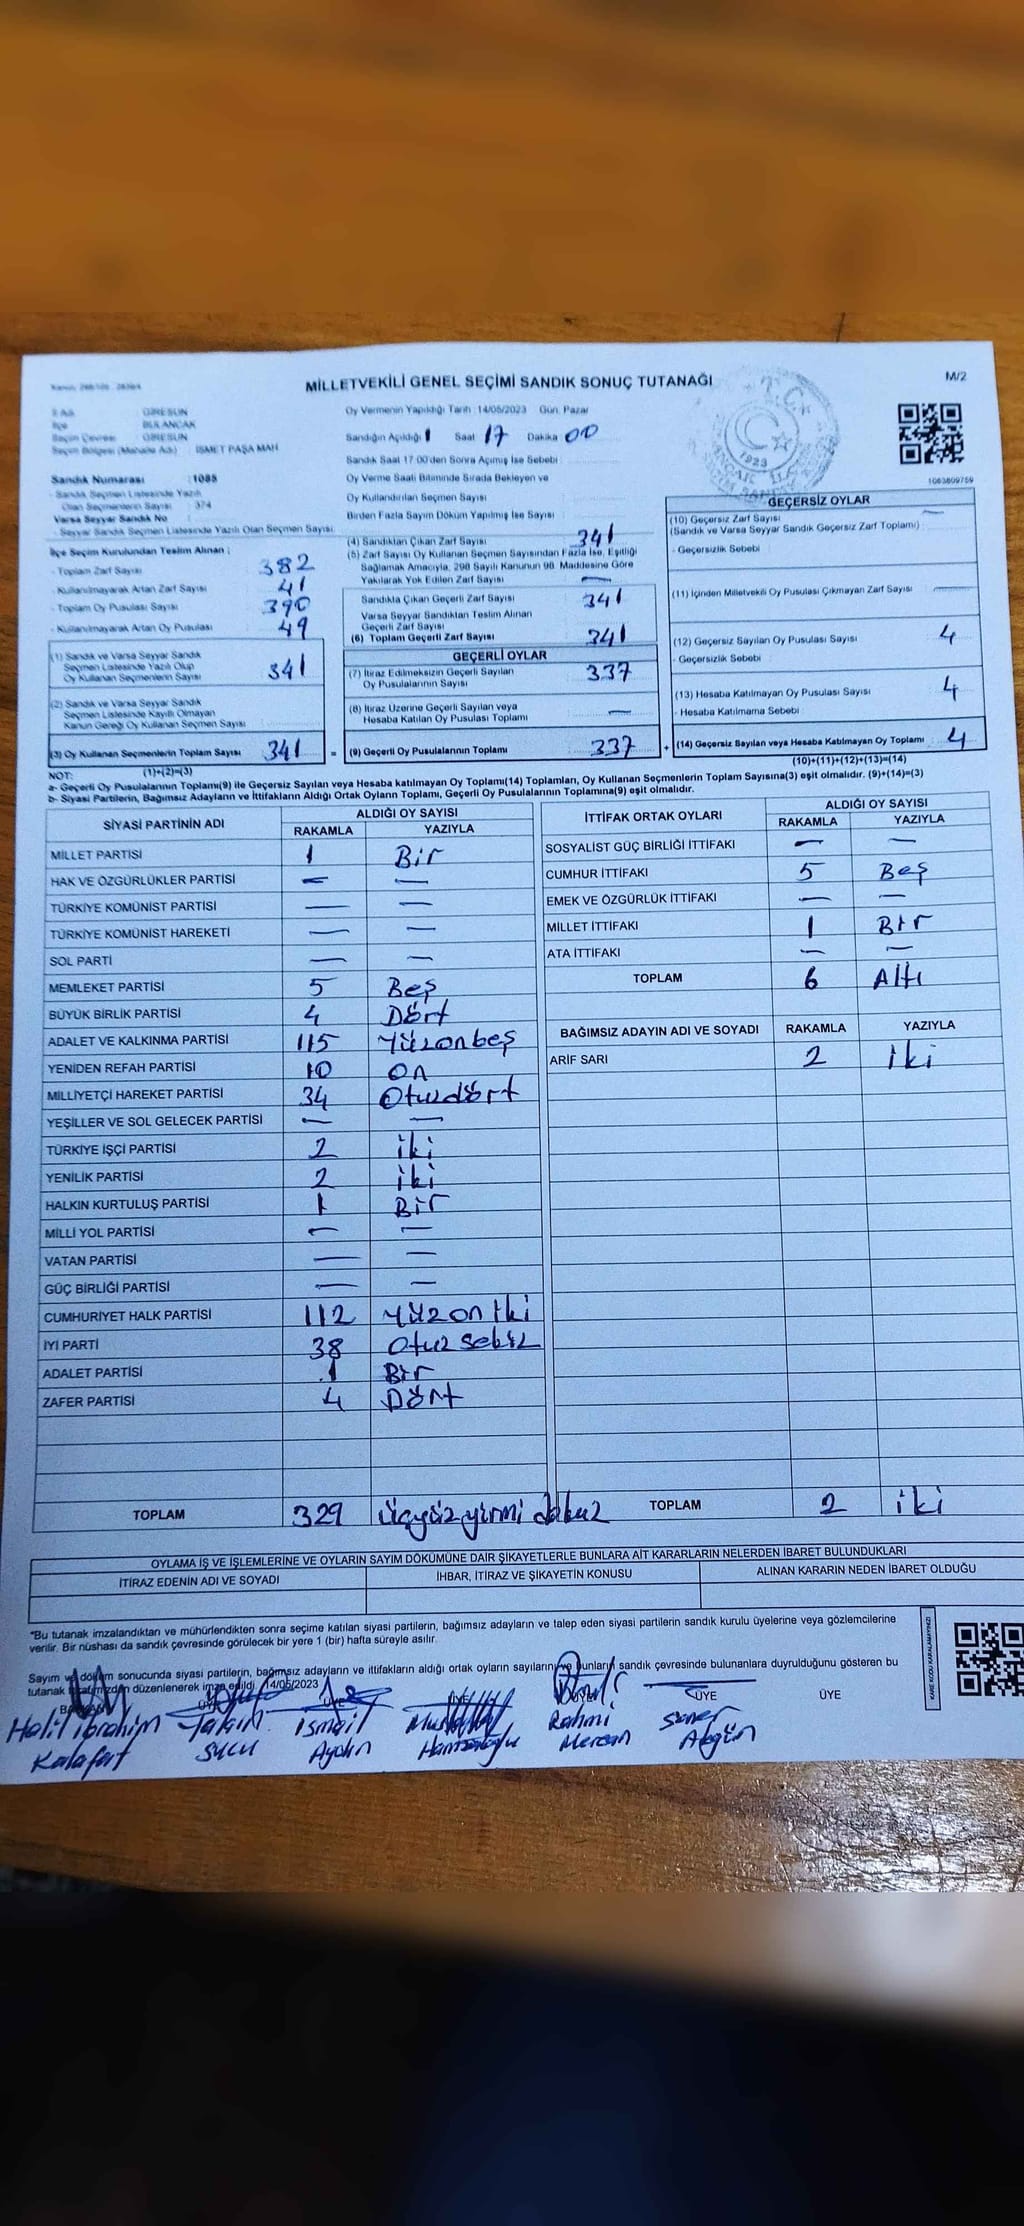 MİLLETVEKİLİ GENEL SEÇİMİ SANDIK SONUÇ TUTANAĞI
M/2
GİRESUN
Oy Vermenin Yapıldığı Tarih :14/05/2023 Gün: Pazar
İlçe : BULANCAK
Seçim Çevresi : GİRESUN
Sandığın Açıldığı Saat 17 Dakika 00
Seçim Bölgesi (Mahalle Adı) : İSMET PAŞA MAH
Sandık Saat 17:00'den Sonra Açımış İse Sebebi :
T.C.
1923
1063809759
Sandık Numarası : 1085
- Sandık Seçmen Listesinde Yazılı
Olan Seçmenlerin Sayısı : 374
Varsa Seyyar Sandık No :
- Seyyar Sandık Seçmen Listesinde Yazılı Olan Seçmen Sayısı:
Oy Verme Saati Bitiminde Sırada Bekleyen ve
Oy Kullandırılan Seçmen Sayısı
Birden Fazla Sayım Döküm Yapılmış İse Sayısı
İlçe Seçim Kurulundan Teslim Alınan :
- Toplam Zarf Sayısı 382
- Kullanılmayarak Artan Zarf Sayısı 41
- Toplam Oy Pusulası Sayısı 390
- Kullanılmayarak Artan Oy Pusulası 49
(1) Sandık ve Varsa Seyyar Sandık
Seçmen Listesinde Yazılı Olup
Oy Kullanan Seçmenlerin Sayısı 341
(2) Sandık ve Varsa Seyyar Sandık
Seçmen Listesinde Kayıtlı Olmayan
Kanun Gereği Oy Kullanan Seçmen Sayısı
(3) Oy Kullanan Seçmenlerin Toplam Sayısı 341 =
(1)+(2)=(3)
(4) Sandıktan Çıkan Zarf Sayısı 341
(5) Zarf Sayısı Oy Kullanan Seçmen Sayısından Fazla İse, Eşitliği
Sağlamak Amacıyla, 298 Sayılı Kanunun 98. Maddesine Göre
Yakılarak Yok Edilen Zarf Sayısı —
Sandıkta Çıkan Geçerli Zarf Sayısı 341
Varsa Seyyar Sandıktan Teslim Alınan
Geçerli Zarf Sayısı
(6) Toplam Geçerli Zarf Sayısı 341
GEÇERLİ OYLAR
(7) İtiraz Edilmeksizin Geçerli Sayılan
Oy Pusulalarının Sayısı 337
(8) İtiraz Üzerine Geçerli Sayılan veya
Hesaba Katılan Oy Pusulası Toplamı —
(9) Geçerli Oy Pusulalarının Toplamı 337 +
GEÇERSİZ OYLAR
(10) Geçersiz Zarf Sayısı —
(Sandık ve Varsa Seyyar Sandık Geçersiz Zarf Toplamı)
- Geçersizlik Sebebi
(11) İçinden Milletvekili Oy Pusulası Çıkmayan Zarf Sayısı —
(12) Geçersiz Sayılan Oy Pusulası Sayısı 4
- Geçersizlik Sebebi
(13) Hesaba Katılmayan Oy Pusulası Sayısı 4
- Hesaba Katılmama Sebebi
(14) Geçersiz Sayılan veya Hesaba Katılmayan Oy Toplamı 4
(10)+(11)+(12)+(13)=(14)
NOT:
a- Geçerli Oy Pusulalarının Toplamı(9) ile Geçersiz Sayılan veya Hesaba katılmayan Oy Toplamı(14) Toplamları, Oy Kullanan Seçmenlerin Toplam Sayısına(3) eşit olmalıdır. (9)+(14)=(3)
b- Siyasi Partilerin, Bağımsız Adayların ve İttifakların Aldığı Ortak Oyların Toplamı, Geçerli Oy Pusulalarının Toplamına(9) eşit olmalıdır.
SİYASİ PARTİNİN ADI ALDIĞI OY SAYISI
RAKAMLA YAZIYLA
MİLLET PARTİSİ 1 Bir
HAK VE ÖZGÜRLÜKLER PARTİSİ — —
TÜRKİYE KOMÜNİST PARTİSİ — —
TÜRKİYE KOMÜNİST HAREKETİ — —
SOL PARTİ — —
MEMLEKET PARTİSİ 5 Beş
BÜYÜK BİRLİK PARTİSİ 4 Dört
ADALET VE KALKINMA PARTİSİ 115 Yüzonbeş
YENİDEN REFAH PARTİSİ 10 On
MİLLİYETÇİ HAREKET PARTİSİ 34 Otuzdört
YEŞİLLER VE SOL GELECEK PARTİSİ — —
TÜRKİYE İŞÇİ PARTİSİ 2 iki
YENİLİK PARTİSİ 2 iki
HALKIN KURTULUŞ PARTİSİ 1 Bir
MİLLİ YOL PARTİSİ — —
VATAN PARTİSİ — —
GÜÇ BİRLİĞİ PARTİSİ — —
CUMHURİYET HALK PARTİSİ 112 Yüzoniki
İYİ PARTİ 38 Otuz sekiz
ADALET PARTİSİ 1 Bir
ZAFER PARTİSİ 4 Dört
TOPLAM 329 Üçyüzyirmi dokuz
İTTİFAK ORTAK OYLARI ALDIĞI OY SAYISI
RAKAMLA YAZIYLA
SOSYALİST GÜÇ BİRLİĞİ İTTİFAKI — —
CUMHUR İTTİFAKI 5 Beş
EMEK VE ÖZGÜRLÜK İTTİFAKI — —
MİLLET İTTİFAKI 1 Bir
ATA İTTİFAKI — —
TOPLAM 6 Altı
BAĞIMSIZ ADAYIN ADI VE SOYADI RAKAMLA YAZIYLA
ARİF SARI 2 iki
TOPLAM 2 iki
OYLAMA İŞ VE İŞLEMLERİNE VE OYLARIN SAYIM DÖKÜMÜNE DAİR ŞİKAYETLERLE BUNLARA AİT KARARLARIN NELERDEN İBARET BULUNDUKLARI
İTİRAZ EDENİN ADI VE SOYADI İHBAR, İTİRAZ VE ŞİKAYETİN KONUSU ALINAN KARARIN NEDEN İBARET OLDUĞU
"Bu tutanak imzalandıktan ve mühürlendikten sonra seçime katılan siyasi partilerin, bağımsız adayların ve talep eden siyasi partilerin sandık kurulu üyelerine veya gözlemcilerine
verilir. Bir nüshası da sandık çevresinde görülecek bir yere 1 (bir) hafta süreyle asılır.
Sayım ve döküm sonucunda siyasi partilerin, bağımsız adayların ve ittifakların aldığı ortak oyların sayılarını ve bunların sandık çevresinde bulunanlara duyrulduğunu gösteren bu
tutanak tarafımızdan düzenlenerek imza edildi. 14/05/2023
ÜYE ÜYE
Halil ibrahim Kalafat
SUCU
ismail Aydın
Rahmi Mercan
KARE KODU KARALAMAYINIZ!